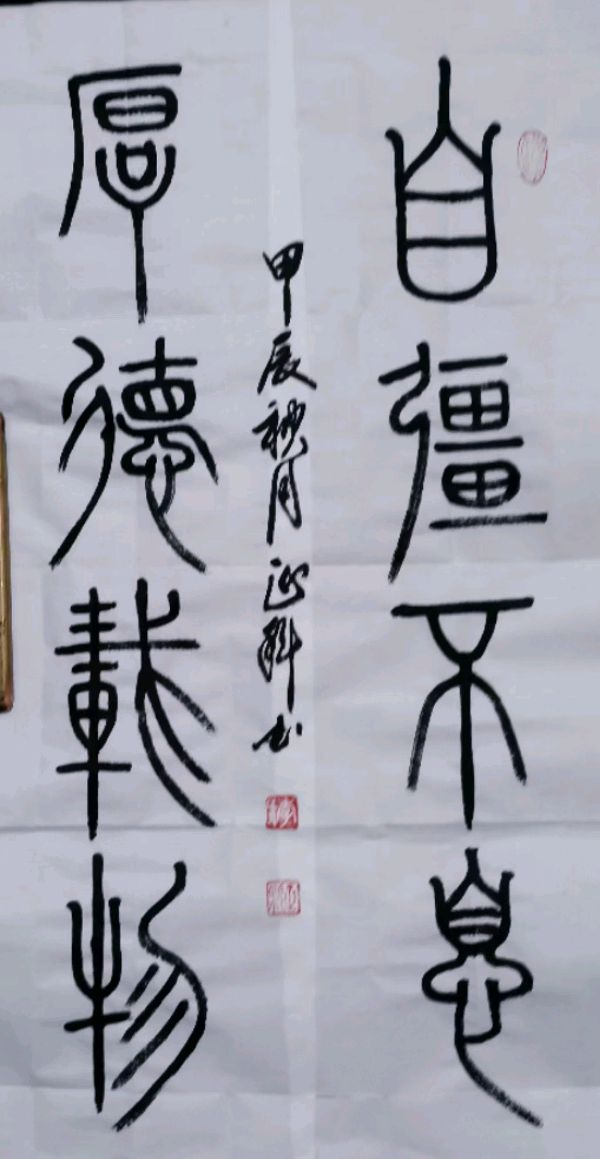 自彊不息
厚德載物
甲辰秋月 延科书